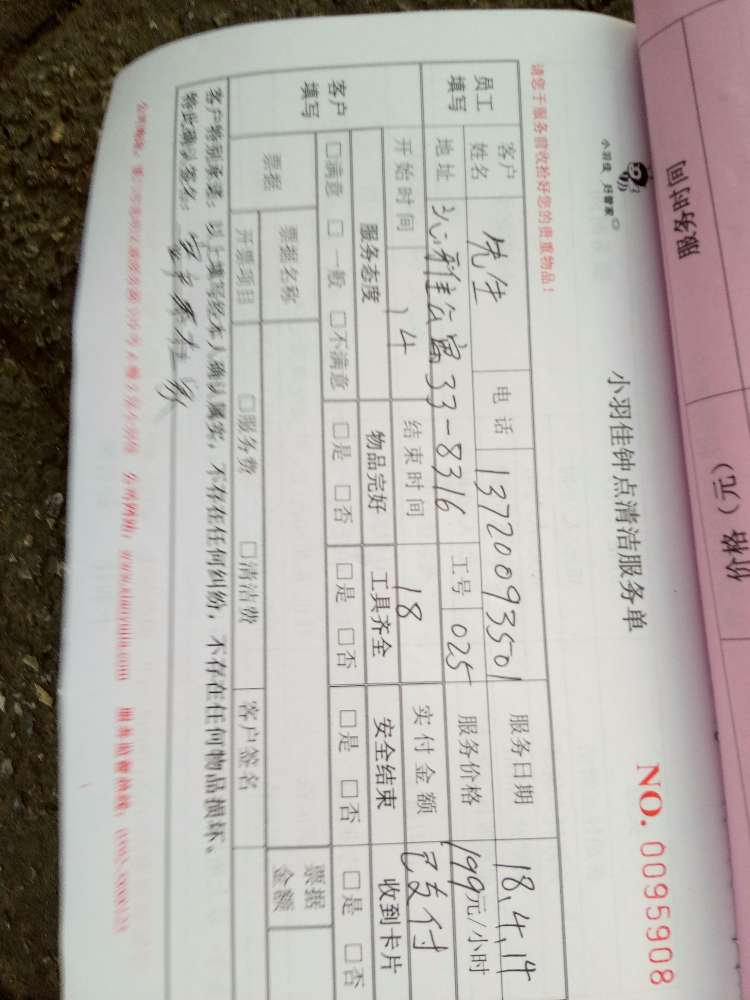 服务时间
价格（元）
小羽佳 好管家
小羽佳钟点清洁服务单
NO. 0095908
请您于服务前收拾好您的贵重物品！
员工填写
客户姓名 先生 电话 13720093501 服务日期 18.4.14
地址 沁雅公寓33-8316 工号 025 服务价格 199元/小时
开始时间 14 结束时间 18 实付金额 已支付
客户填写
服务态度 物品完好 工具齐全 安全结束 收到卡片
□满意 □一般 □不满意 □是 □否 □是 □否 □是 □否 □是 □否
票据 票据名称 票据金额
开票项目 □服务费 □清洁费 客户签名
客户特别承诺：以上填写经本人确认属实，不存在任何纠纷，不存在任何物品损坏。
特此确认签名：